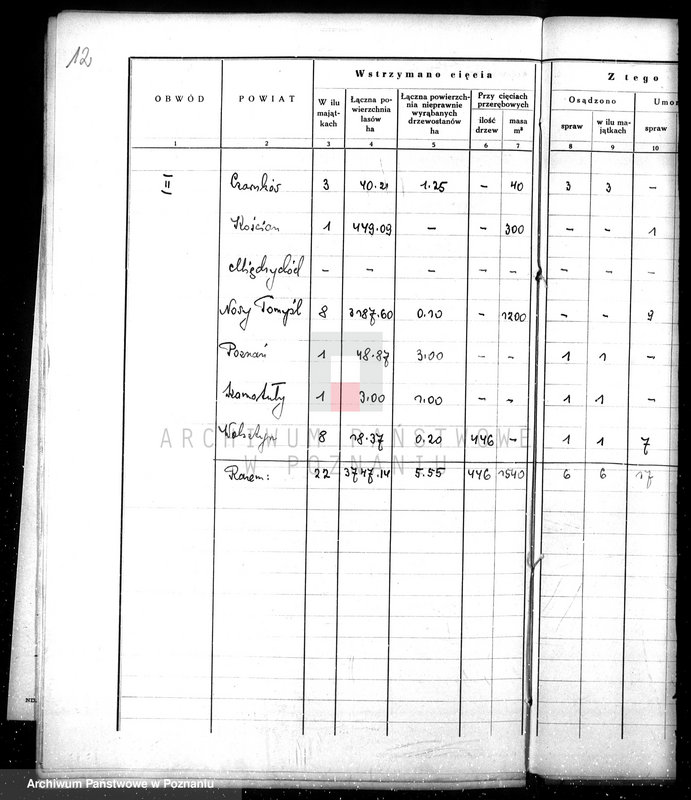 12
Wstrzymano cięcia
Z tego
OBWÓD POWIAT W ilu mająt-kach Łączna po-wierzchnia lasów ha Łączna powierzch-nia nieprawnie wyrąbanych drzewostanów ha Przy cięciach przerębowych Osądzono Umor
ilość drzew masa m³ spraw w ilu ma-jątkach spraw
1 2 3 4 5 6 7 8 9 10
II Czarnków 3 40.21 1.25 – 40 3 3 –
Kościan 1 449.09 – – 300 – – 1
Międzychód – – – – – – – –
Nowy Tomyśl 8 3187.60 0.10 – 1200 – – 9
Poznań 1 48.87 3,00 – – 1 1 –
Szamotuły 1 3,00 1,00 – – 1 1 –
Wolsztyn 8 18.37 0.20 446 – 1 1 7
Razem: 22 3747.14 5.55 446 1540 6 6 17
ARCHIWUM PAŃSTWOWE
W POZNANIU
Archiwum Państwowe w Poznaniu